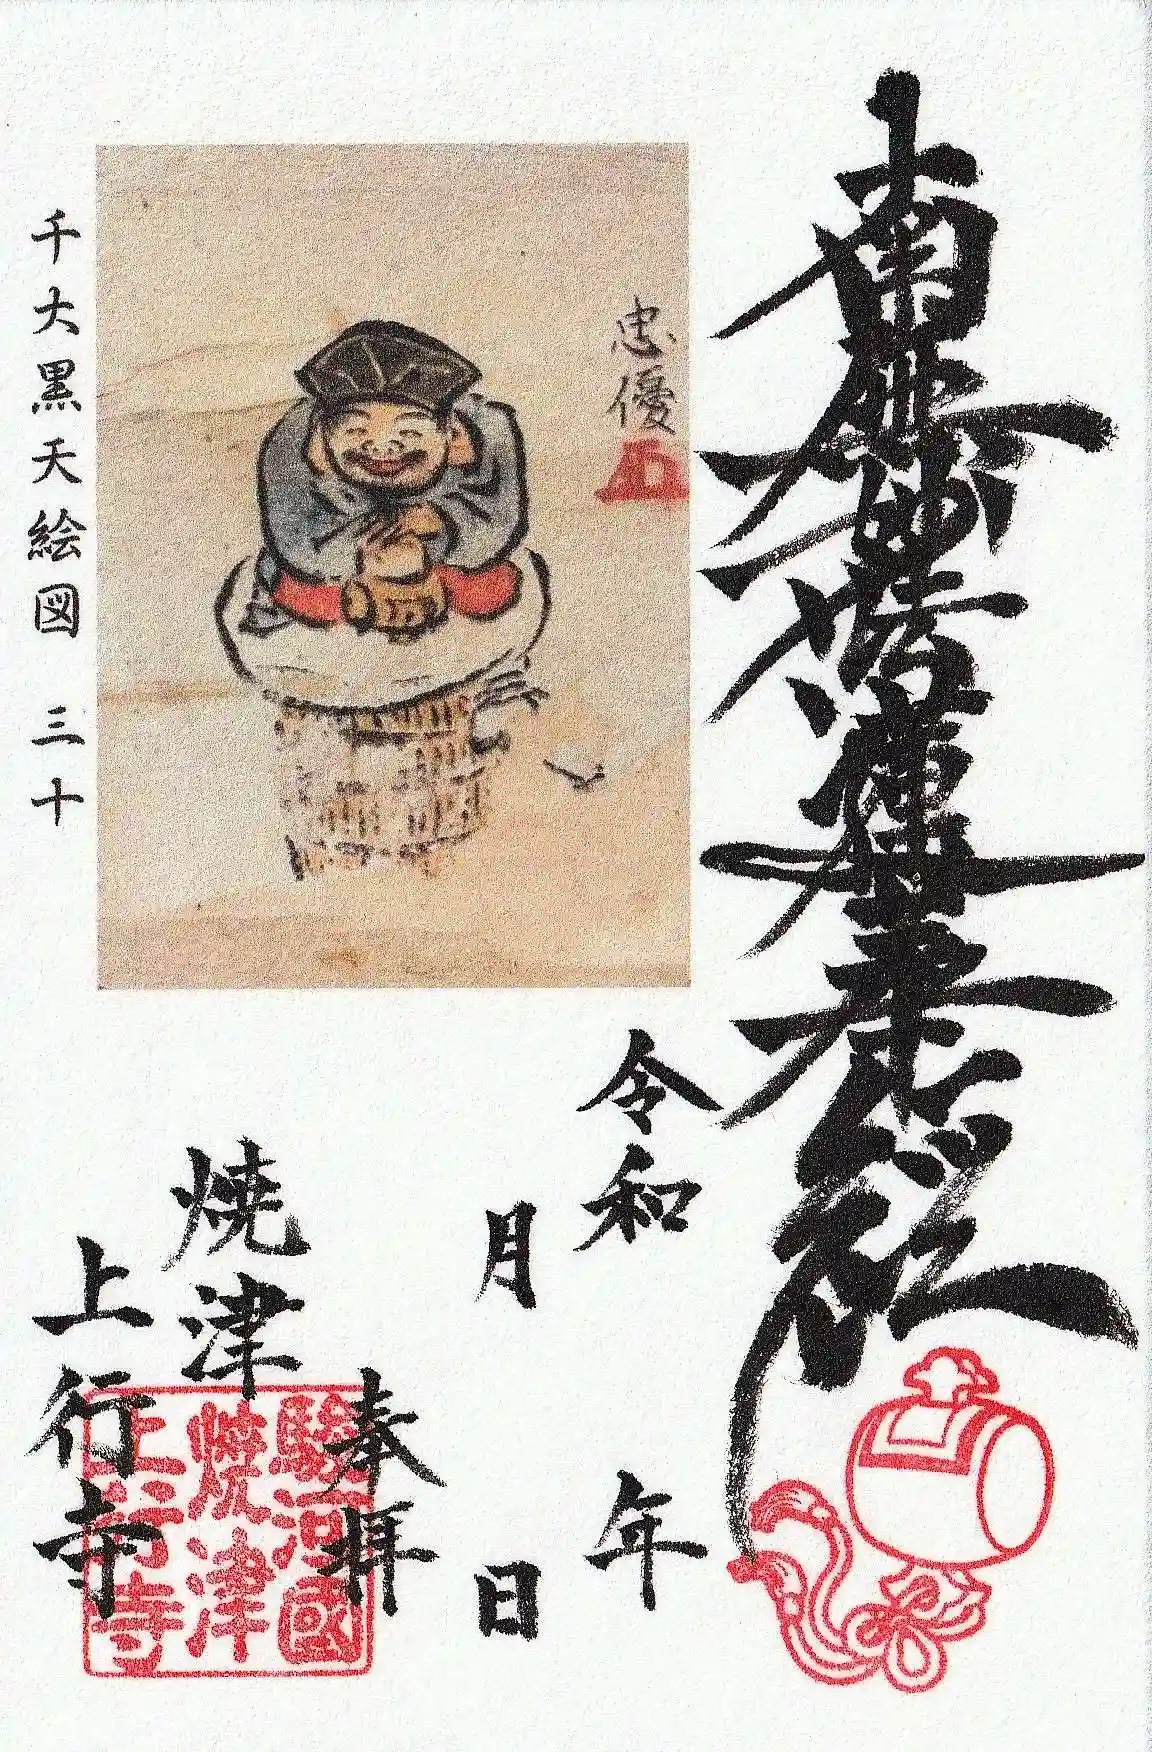 南無妙法蓮華経
忠優
千大黒天絵図 三十
令和 年
月 日
奉拝
焼津
上行寺
駿河國
焼津
上行寺